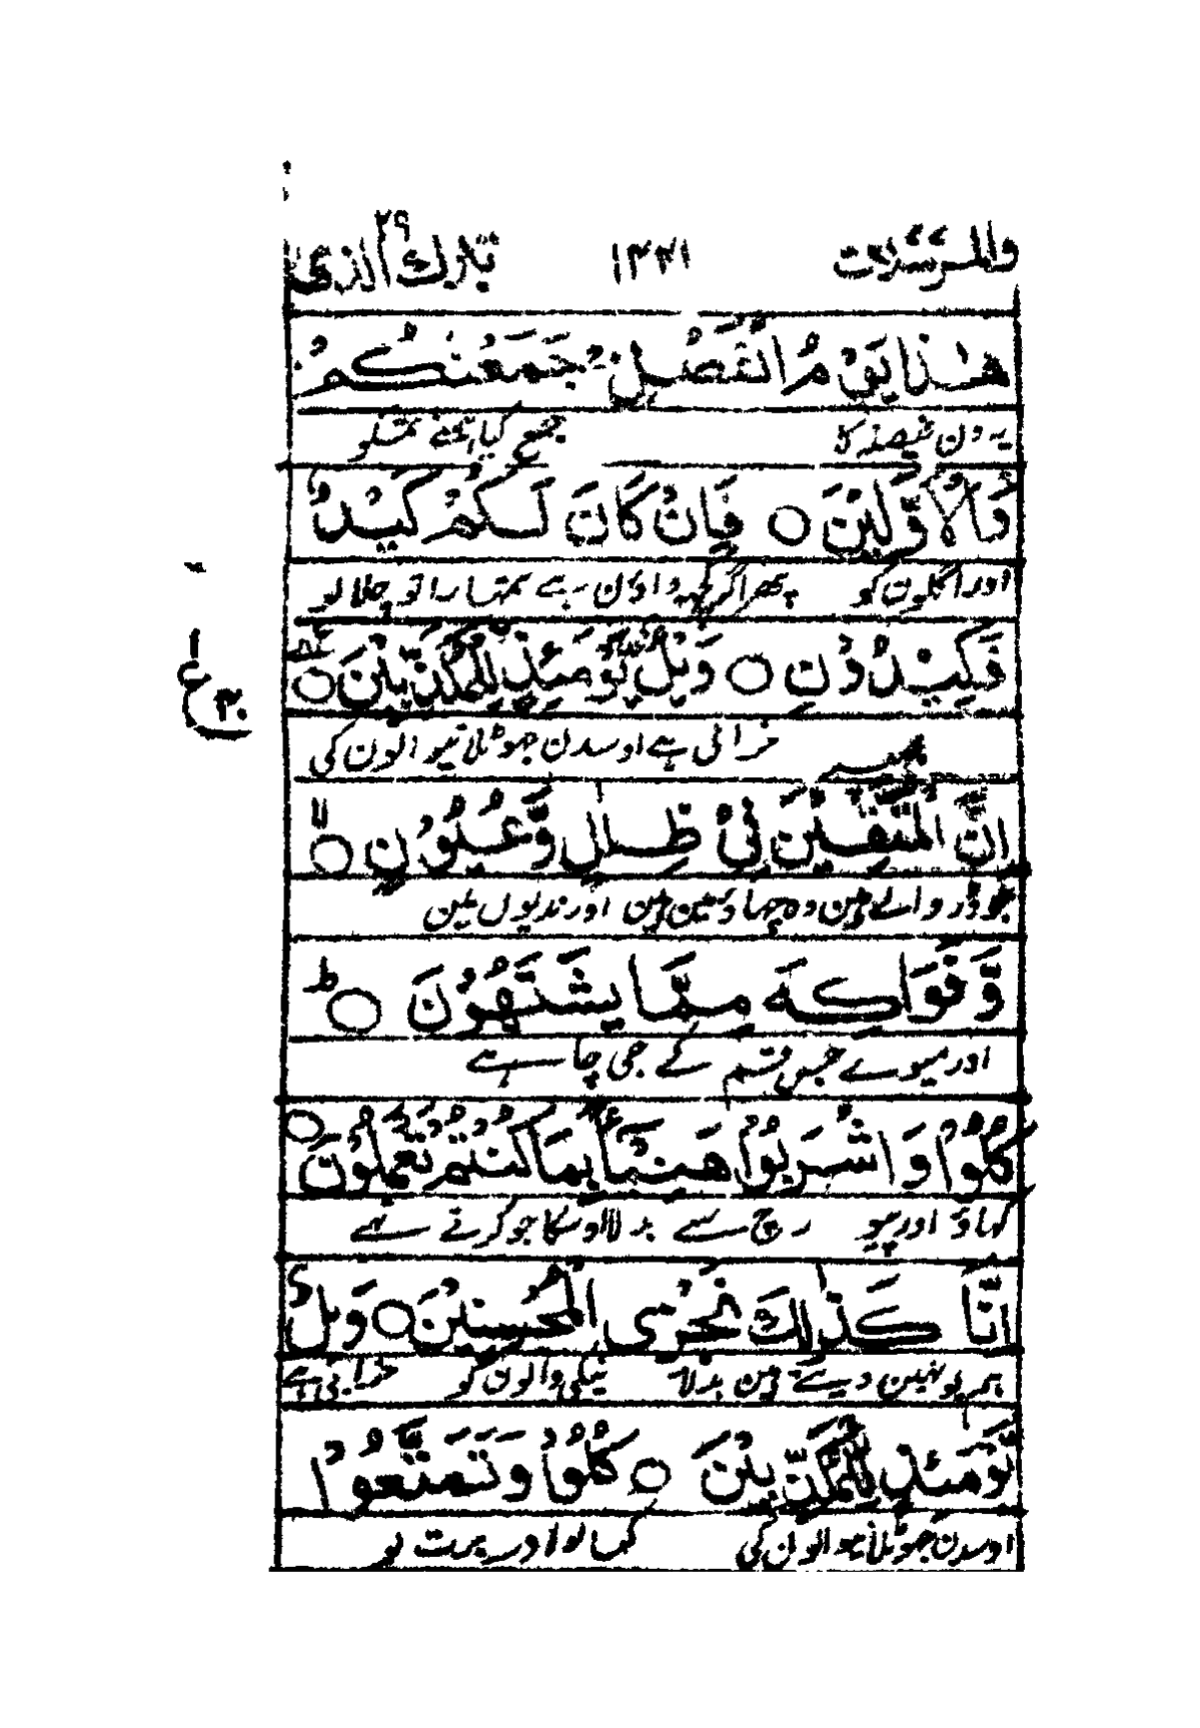 والمرسلات ۱۲۲۱ تبارك الذی ۲۹
هٰذَا يَوْمُ الْفَصْلِ جَمَعْنٰكُمْ
یہ دن فیصلہ کا جمع کیا ہمنے تمکو
وَالْاَوَّلِيْنَ ○ فَاِنْ كَانَ لَكُمْ كَيْدٌ
اور اگلون کو پھر اگر کچہہ داؤن ہے تمہارا تو چلا لو
فَكِيْدُوْنِ ○ وَيْلٌ يَّوْمَئِذٍ لِّلْمُكَذِّبِيْنَ ○
خرابی ہے اوسدن جھوٹلانیوالون کی
ع
اِنَّ الْمُتَّقِيْنَ فِىْ ظِلٰلٍ وَّعُيُوْنٍ ○ لا
جو ڈر والے ہین وہ چہاؤن مین ہین اور ندیون مین
وَّفَوَاكِهَ مِمَّا يَشْتَهُوْنَ ○ ط
اور میوے جس قسم کے جی چاہے
كُلُوْا وَاشْرَبُوْا هَنِيْٓـًٔا بِمَا كُنْتُمْ تَعْمَلُوْنَ ○
کہاؤ اور پیو رچ سے بدلا اوسکا جو کرتے تہے
اِنَّا كَذٰلِكَ نَجْزِى الْمُحْسِنِيْنَ ○ وَيْلٌ
ہم یونہین دیتے ہین بدلا نیکی والون کو خرابی ہے
يَّوْمَئِذٍ لِّلْمُكَذِّبِيْنَ ○ كُلُوْا وَتَمَتَّعُوْا
اوسدن جھوٹلانیوالون کی کہا لو اور برت لو